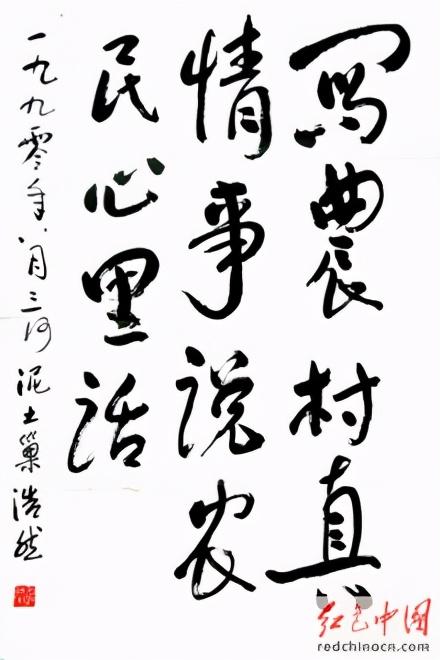 写農村真
情事说农
民心里话
一九九零年八月三河泥土巢浩然
红色中国
redchinacn.com